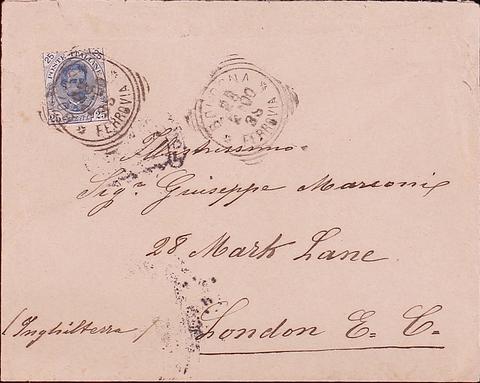 25 POSTE ITALIANE 25
25 25
FERROVIA
BOLOGNA
FERROVIA
Illustrissimo
Sigr. Guiseppe Marconi
28 Mark Lane
(Inghilterra)
London E. C.